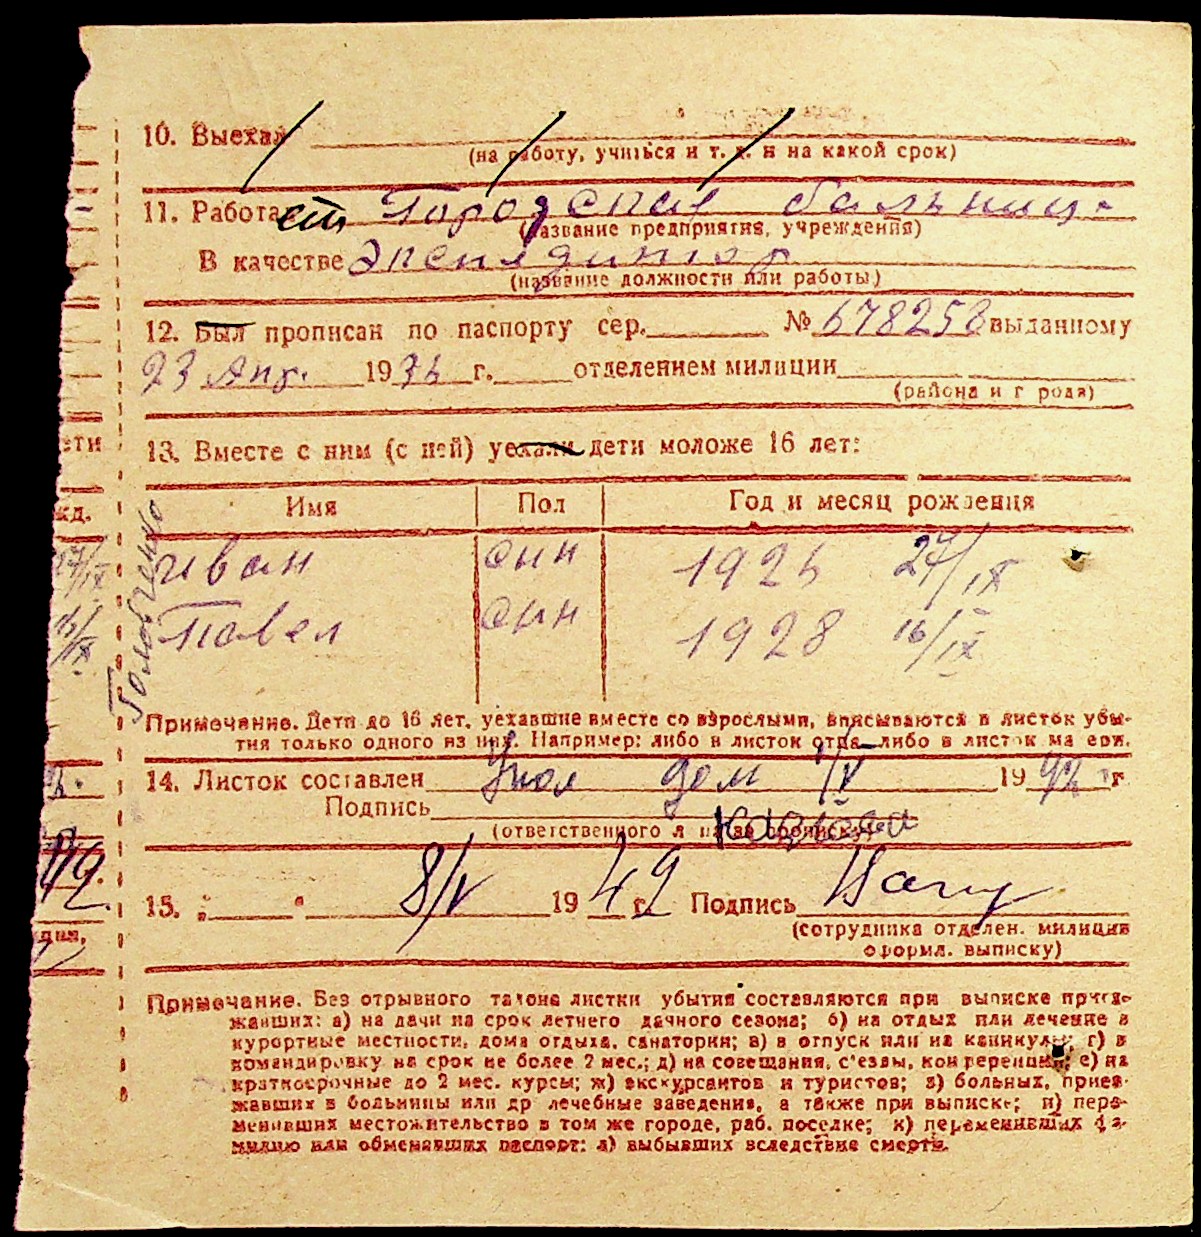 10. Выехал
(на работу, учиться и т. д. и на какой срок)
11. Работает Городская больниц.
(название предприятия, учреждения)
В качестве Экспедитор
(название должности или работы)
12. Был прописан по паспорту сер. № 678258 выданному
23 Апр. 1936 г. отделением милиции
(района и города)
13. Вместе с ним (с ней) уехали дети моложе 16 лет:
Имя Пол Год и месяц рождения
Иван сын 1926 27/IX
Павел сын 1928 16/IX
Головченко
Примечание. Дети до 16 лет, уехавшие вместе со взрослыми, вписываются в листок убы-
тия только одного из них. Например: либо в листок отца либо в листок матери.
14. Листок составлен дом /V 1942 г
Подпись
(ответственного лица за прописку)
15. „ “ 8/V 1942 г. Подпись
(сотрудника отделен. милиции
оформл. выписку)
Примечание. Без отрывного талона листки убытия составляются при выписке приез-
жавших: а) на дачи на срок летнего дачного сезона; б) на отдых или лечение в
курортные местности, дома отдыха, санатории; в) в отпуск или на каникулы; г) в
командировку на срок не более 2 мес.; д) на совещания, с'езды, конференции; е) на
краткосрочные до 2 мес. курсы; ж) экскурсантов и туристов; з) больных, прием-
жавших в больницы или др лечебные заведения, а также при выписке; и) пере-
менивших местожительство в том же городе, раб. поселке; к) переменивших фа-
милию или обменявших паспорт: л) выбывших вследствие смерти.